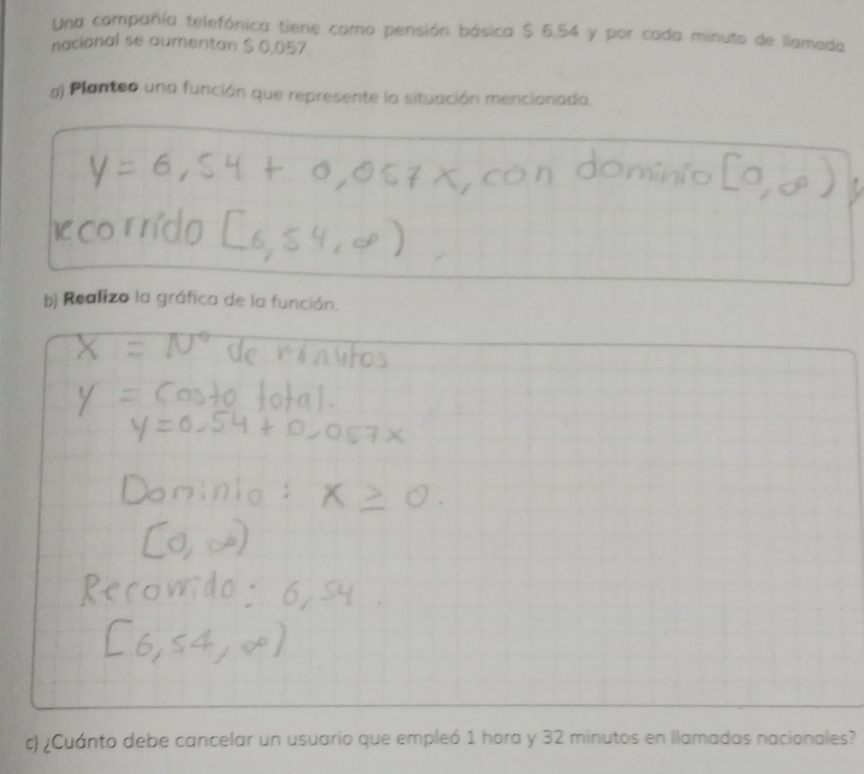 Una compañía telefónica tiene como pensión básica $ 6,54 y por cada minuto de llamada
nacional se aumentan $ 0,057.
a) Planteo una función que represente la situación mencionada.
y = 6,54 + 0,057x, con dominio [0, ∞) y
recorrido [6,54, ∞).
b) Realizo la gráfica de la función.
x = N° de minutos
y = Costo total.
y = 6,54 + 0,057x
Dominio: x ≥ 0.
[0, ∞)
Recorrido: 6,54.
[6,54, ∞)
c) ¿Cuánto debe cancelar un usuario que empleó 1 hora y 32 minutos en llamadas nacionales?